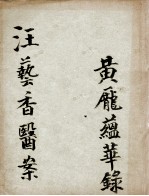 黃龐蘊華錄
汪藝香醫案